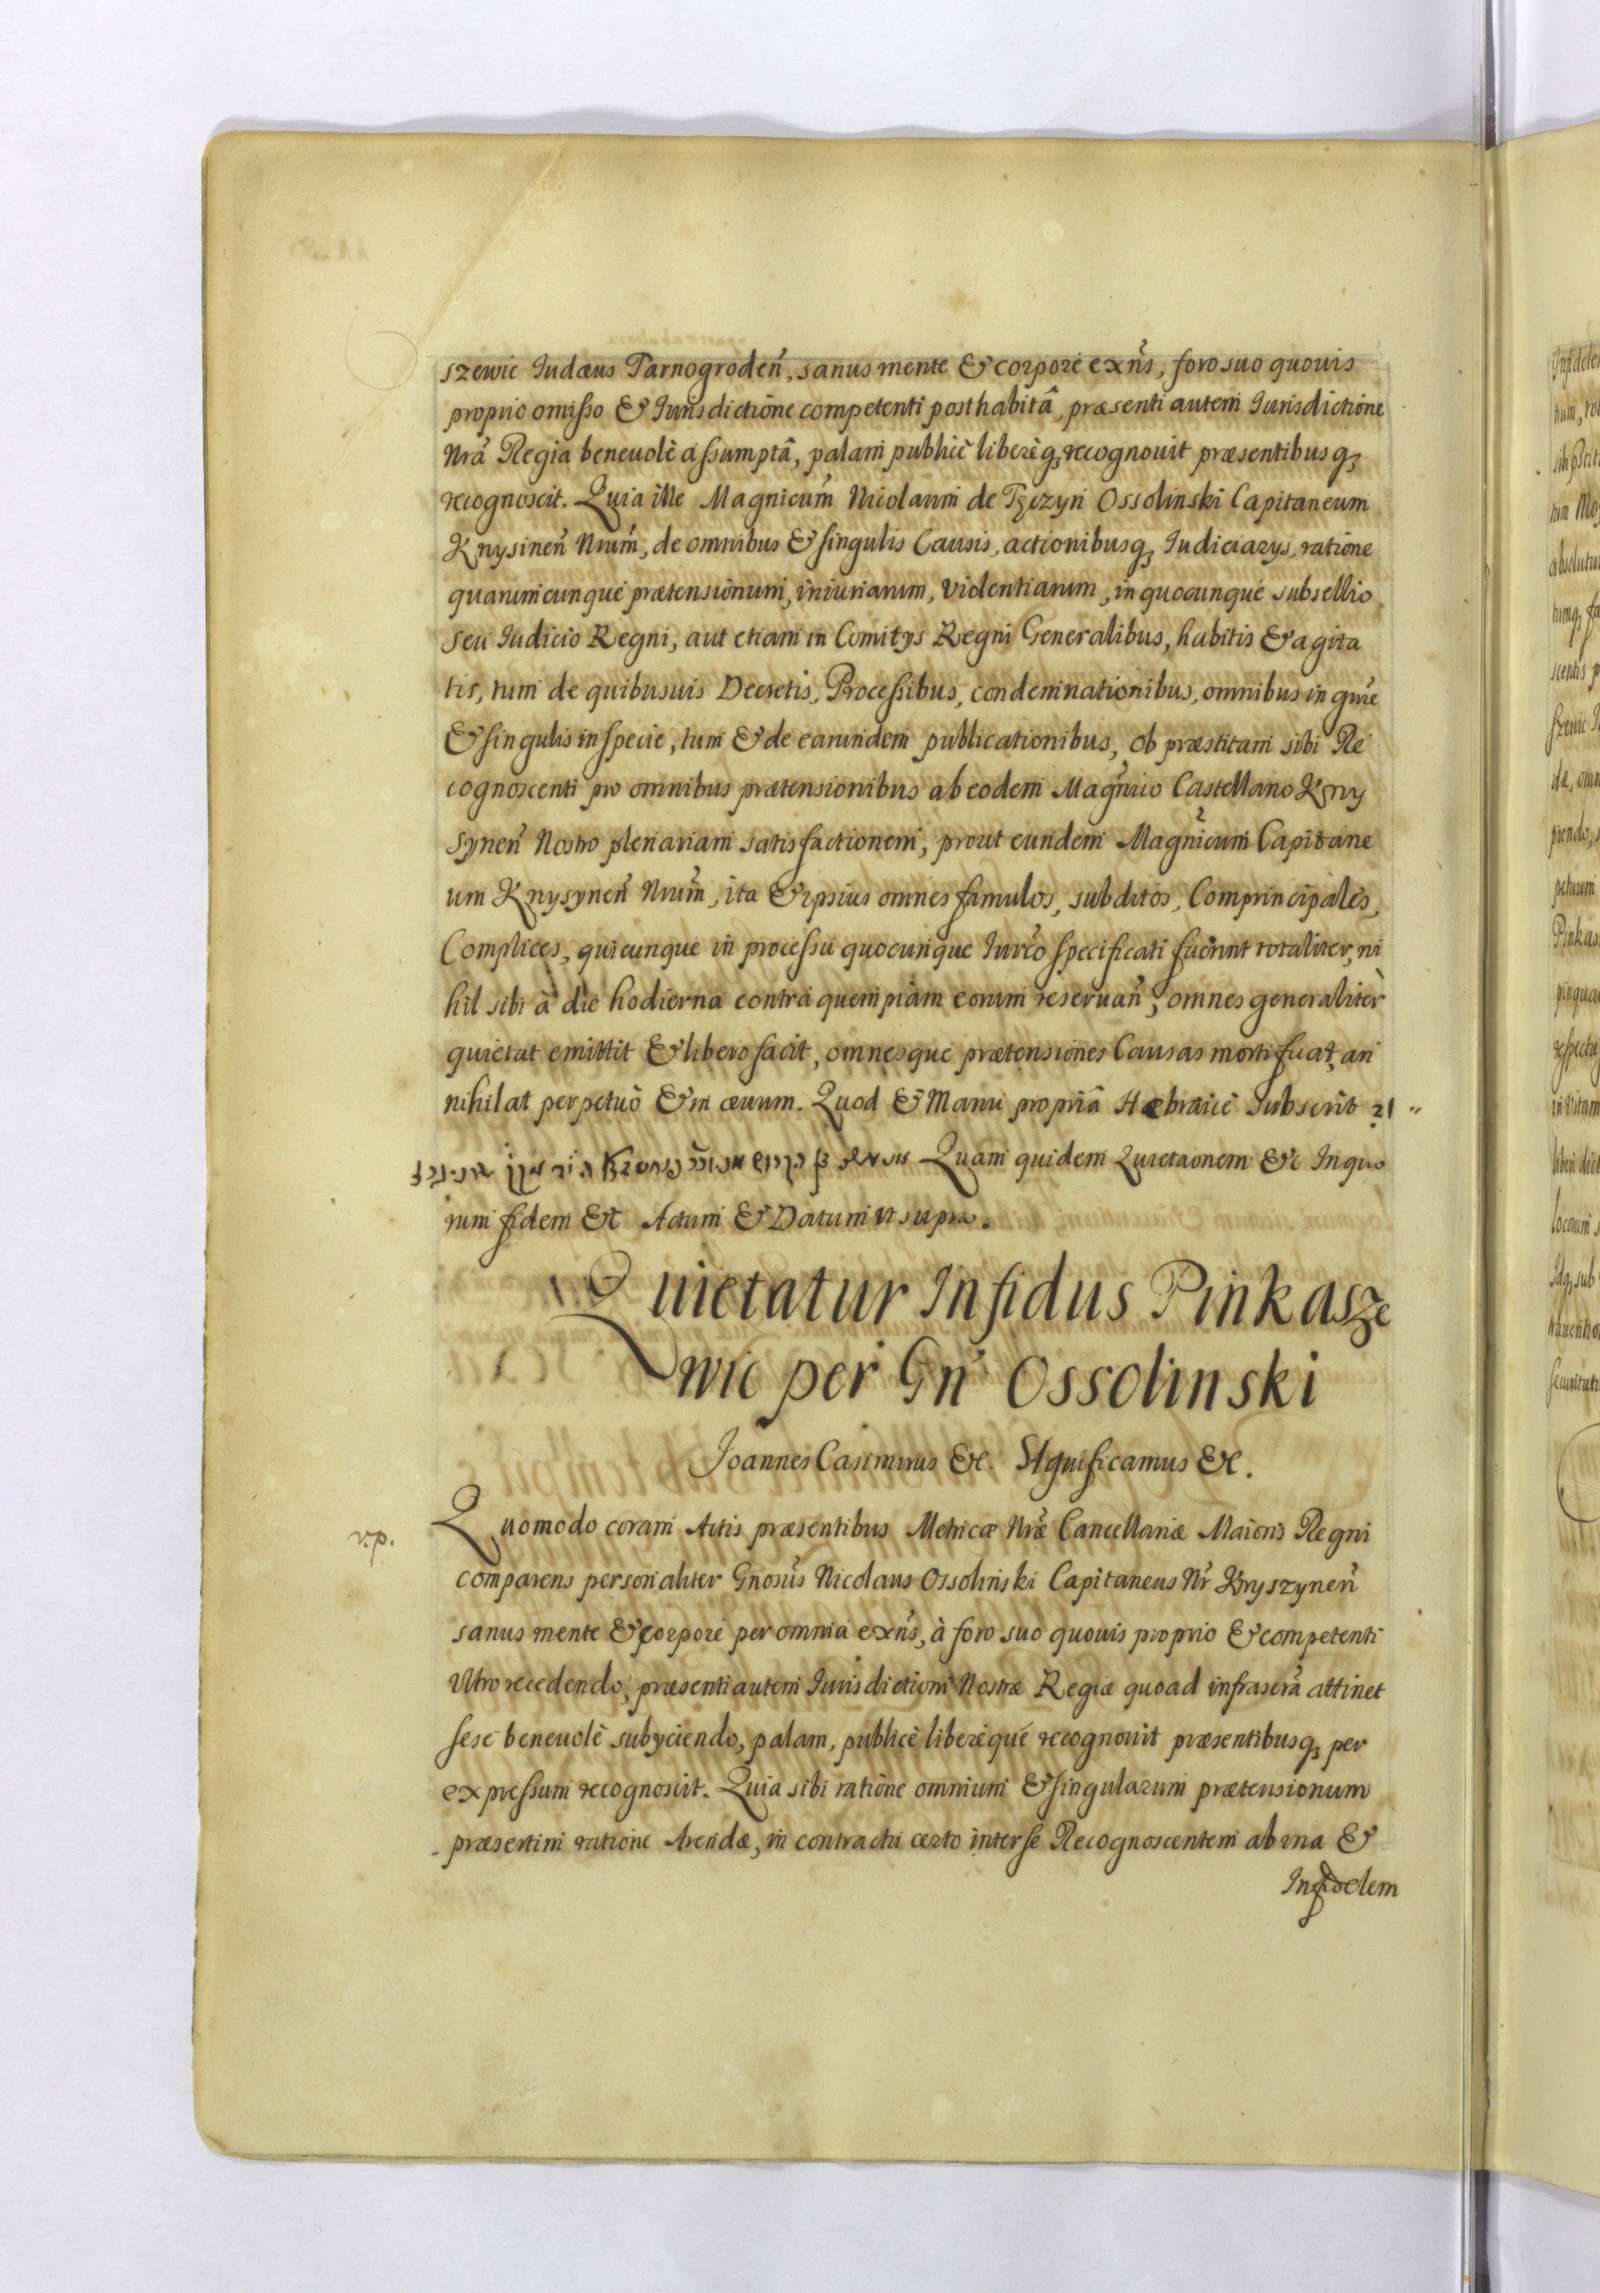 szewic Iudæus Tarnogroden̄, sanus mente & corpore exn̄s, foro suo quouis
proprio omisso & Iurisdictione competenti posthabitâ, præsenti autem Iurisdictione
Nrâ Regia beneuolè assumptâ, palam publicè liberèq₃ recognouit præsentibusq₃
recognoscit. Quia ille Magnicum̄ Nicolaum de Tęczyn Ossolinski Capitaneum
Knysinen̄ Nrum̄, de omnibus & singulis Causis, actionibusq₃ Iudiciarys, ratione
quarumcunque prætensionum, iniuriarum, violentiarum, in quocunque subsellio
seu Iudicio Regni, aut etiam in Comitys Regni Generalibus, habitis & agita
tis, tum de quibusuis Decretis, Processibus, condemnationibus, omnibus in gn̄re
& singulis in specie, tum & de earundem publicationibus, ob præstitam sibi Re
cognoscenti pro omnibus prætensionibus ab eodem Magn̄ico Castellano Kny
synen̄ Nostro plenariam satisfactionem, prout eundem Magn̄icum Capitane
um Knysynen̄ Nrum̄, ita & ipsius omnes famulos, subditos, Comprincipales,
Complices, quicunque in processu quocunque Iurēo specificati fuerint totaliter, ni
hil sibi à die hodierna contra quempiam eorum reseruan̄, omnes generaliter
quietat emittit & libero facit, omnesque prætensiones Causas mortificat, an
nihilat perpetuò & in æuum. Quod & Manu propriâ Hebraicè Subscrib
Quam quidem Quietaonem &c In quo
rum fidem &c Actum & Datum ut supra.
Quietatur Infidus Pinkasze
wic per Gn̄ Ossolinski
Joannes Casimirus &c. Significamus &c.
v.p.
Quomodo coram Actis præsentibus Metricæ Nrǣ Cancellariæ Maioris Regni
comparens personaliter Gnosus̄ Nicolaus Ossolinski Capitaneus Nr̄ Knyszynen̄
sanus mente & corpore per omnia exn̄s, à foro suo quouis proprio & competenti
Vltro recedendo, præsenti autem Iurisdictioni Nostræ Regiæ quoad infraserā attinet
sese beneuolè subyciendo, palam, publicè liberèque recognouit præsentibusq₃ per
expressum recognoscit. Quia sibi ratione omnium & singularum prætensionum
præsertim ratione Arendæ, in contractu certo inter se Recognoscentem ab vna &
Infidelem